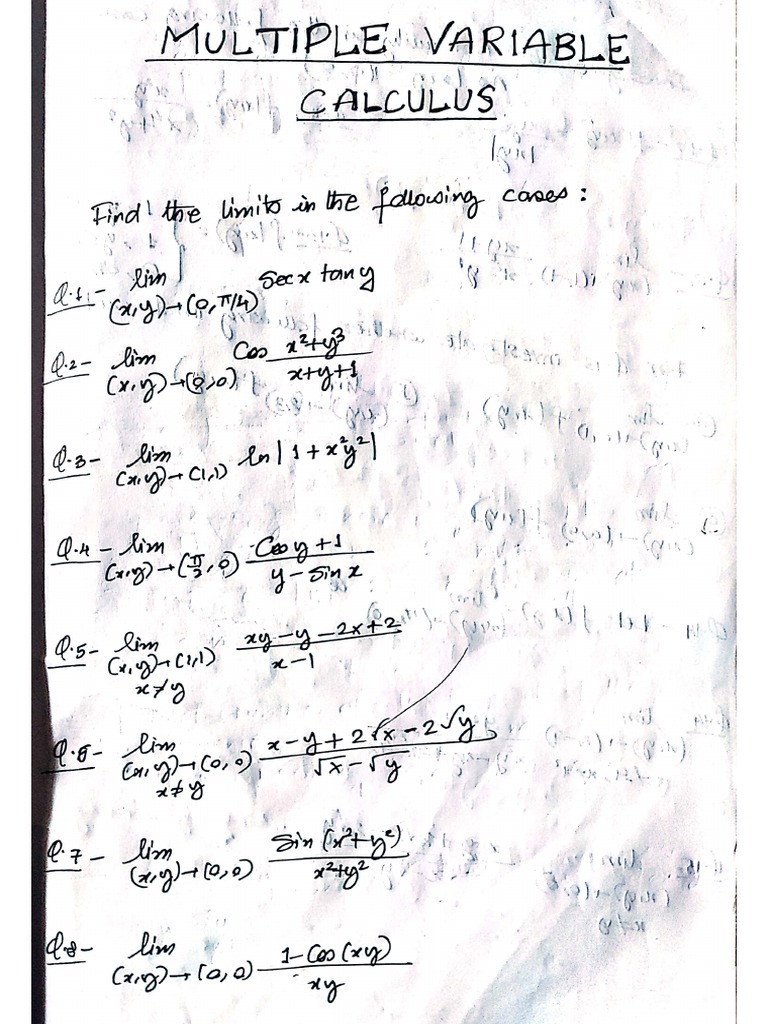 MULTIPLE VARIABLE
CALCULUS
Find the limits in the following cases :
Q.1- lim (x,y)→(0,π/4) Sec x tan y
Q.2- lim (x,y)→(0,0) Cos (x²+y³)/(x+y+1)
Q.3- lim (x,y)→(1,1) ln|1+x²y²|
Q.4- lim (x,y)→(π/2,0) (Cos y+1)/(y-Sin x)
Q.5- lim (x,y)→(1,1) x≠y (xy-y-2x+2)/(x-1)
Q.6- lim (x,y)→(0,0) x≠y (x-y+2√x-2√y)/(√x-√y)
Q.7- lim (x,y)→(0,0) Sin(x²+y²)/(x²+y²)
Q.8- lim (x,y)→(0,0) (1-Cos(xy))/(xy)